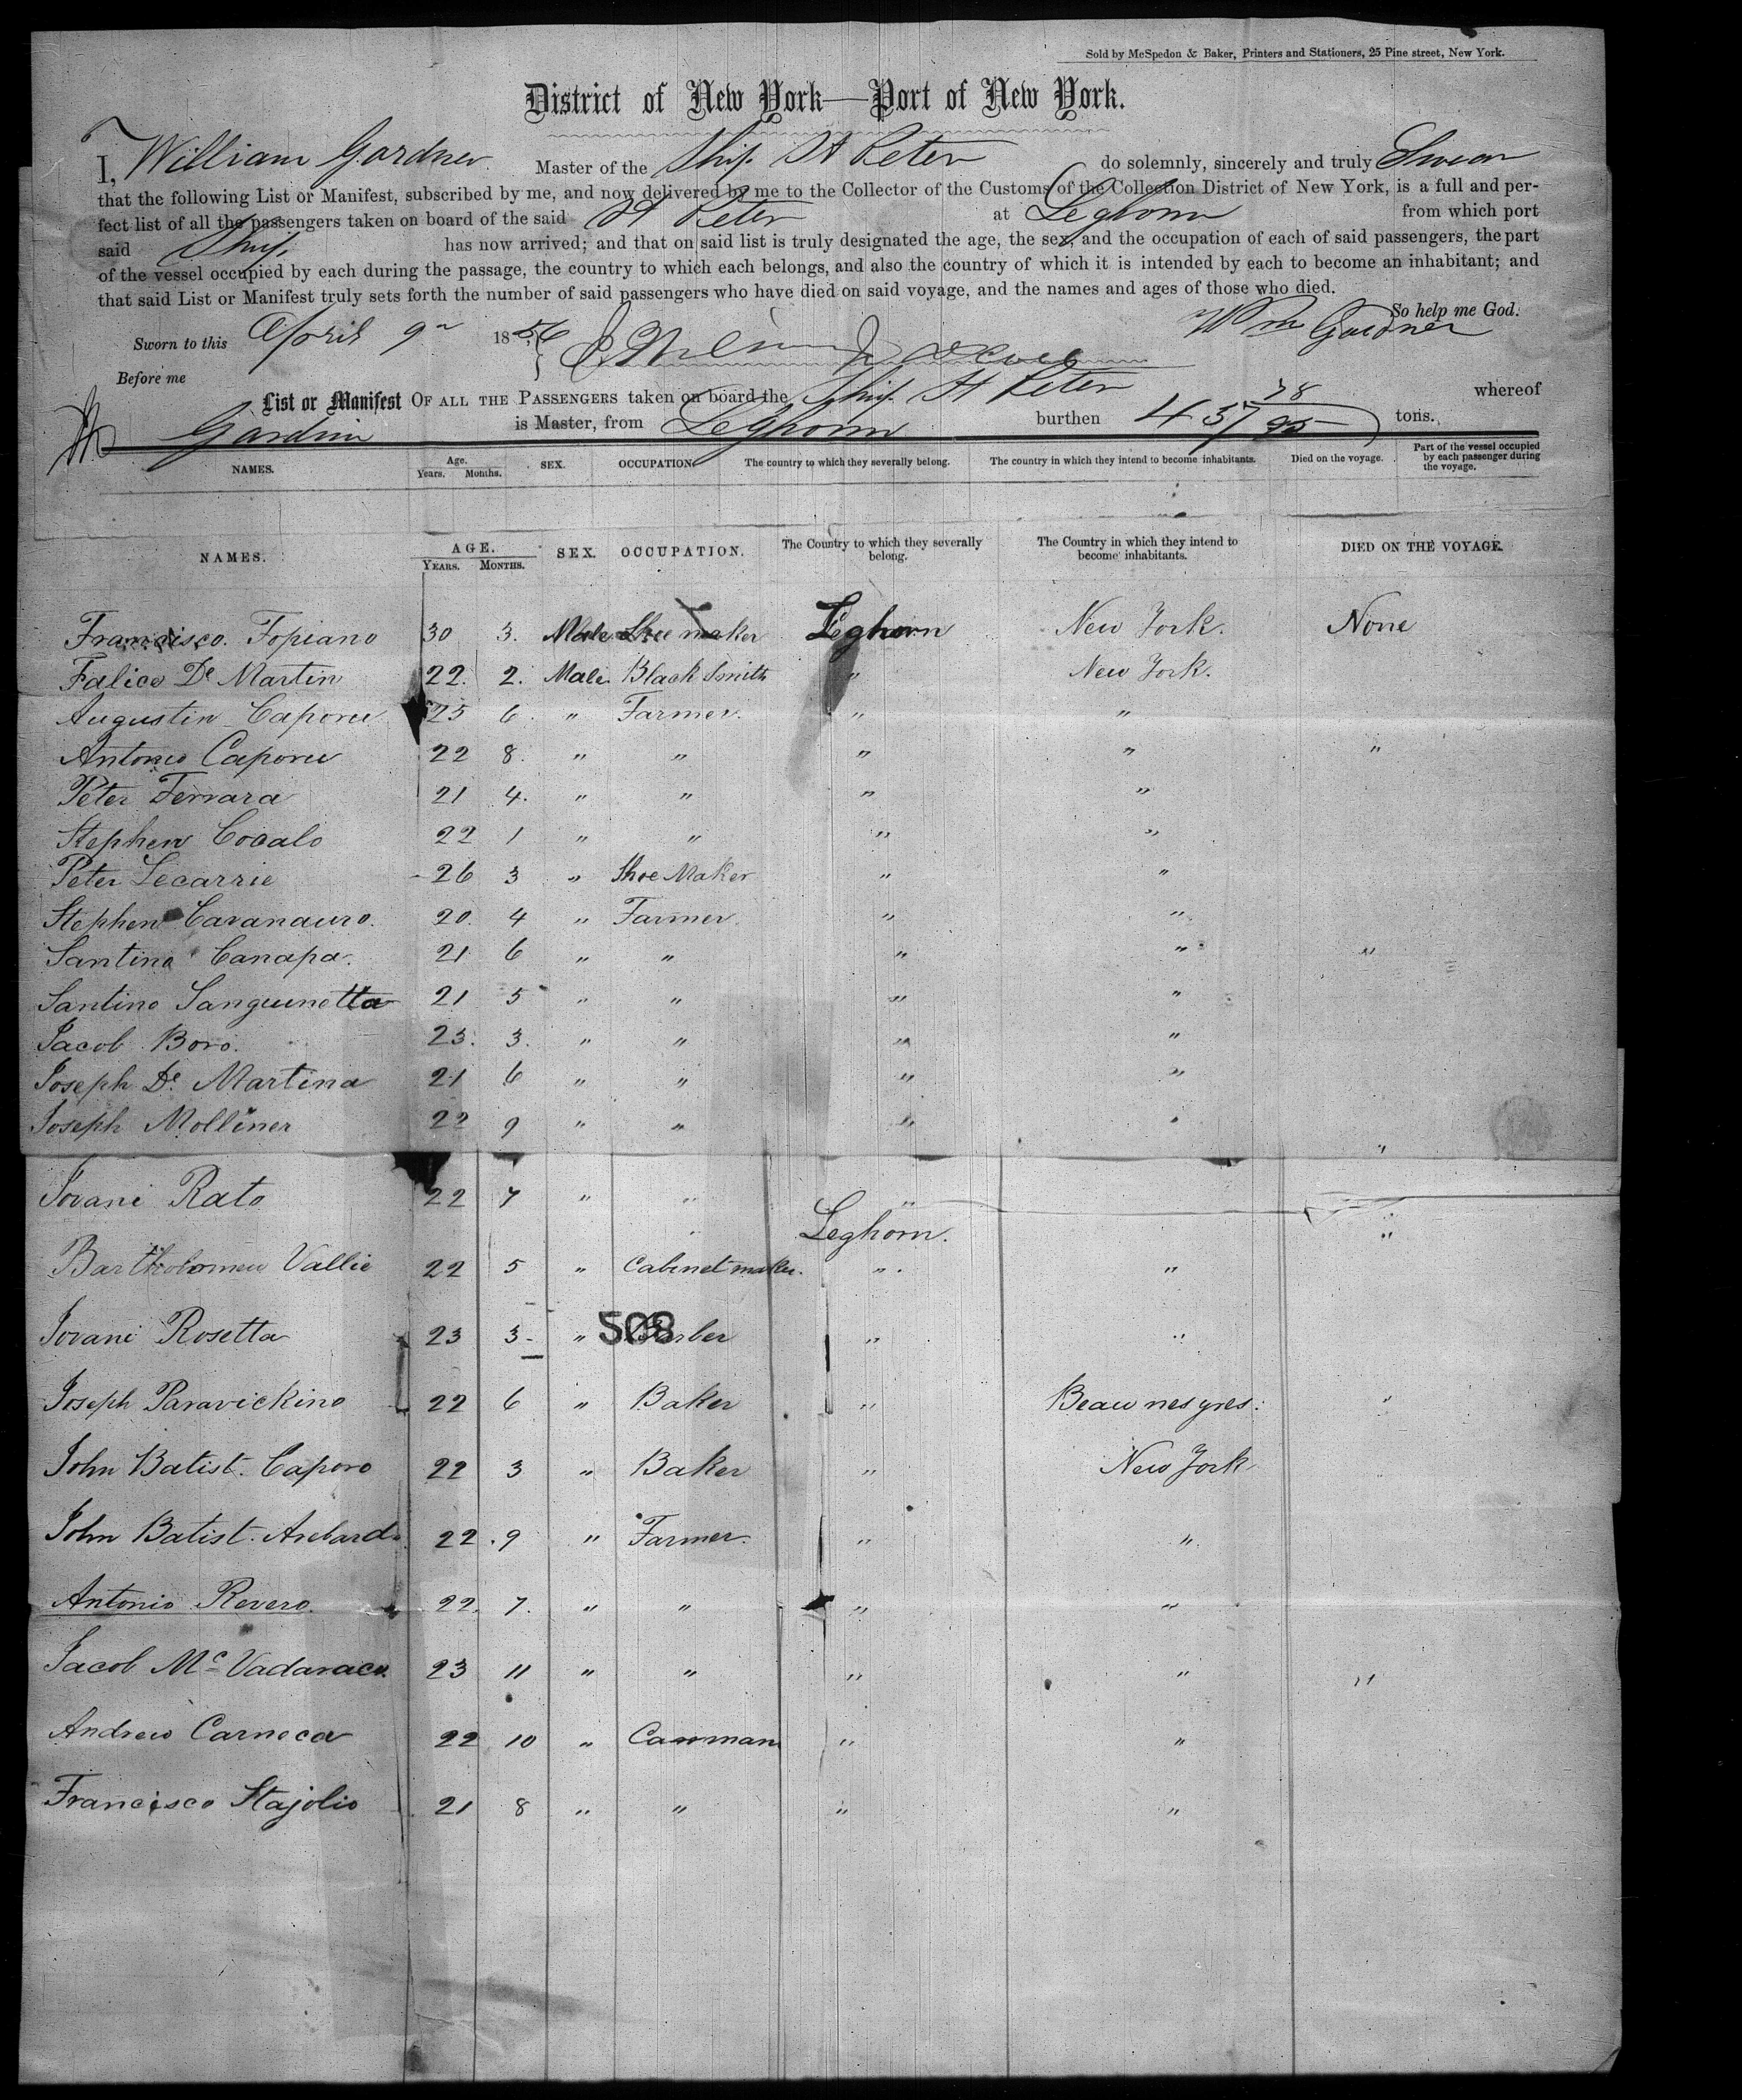 Sold by McSpedon & Baker, Printers and Stationers, 25 Pine street, New York.
District of New York—Port of New York.
I, William Gardner Master of the Ship St Peter do solemnly, sincerely and truly Swear
that the following List or Manifest, subscribed by me, and now delivered by me to the Collector of the Customs of the Collection District of New York, is a full and per-
fect list of all the passengers taken on board of the said St Peter at Leghorn from which port
said Ship has now arrived; and that on said list is truly designated the age, the sex, and the occupation of each of said passengers, the part
of the vessel occupied by each during the passage, the country to which each belongs, and also the country of which it is intended by each to become an inhabitant; and
that said List or Manifest truly sets forth the number of said passengers who have died on said voyage, and the names and ages of those who died.
So help me God.
Sworn to this April 9 1856 Wm Gardner
Before me
List or Manifest OF ALL THE PASSENGERS taken on board the Ship St Peter whereof
Gardner is Master, from Leghorn burthen 437 78/95 tons.
NAMES. Age. Years. Months. SEX. OCCUPATION. The country to which they severally belong. The country in which they intend to become inhabitants. Died on the voyage. Part of the vessel occupied by each passenger during the voyage.
NAMES. AGE. YEARS. MONTHS. SEX. OCCUPATION. The Country to which they severally belong. The Country in which they intend to become inhabitants. DIED ON THE VOYAGE.
Francisco. Fopiano 30 3. Male Shoe maker Leghorn New York. None
Falico De Martin 22. 2. Male Black Smith " New York.
Augustin Caporu 25 6. " Farmer. " "
Antonio Caporu 22 8. " " " " "
Peter Ferrara 21 4. " " " "
Stephen Cocalo 22 1 " " " "
Peter Lecarrie 26 3 " Shoe Maker " "
Stephen Cavanauro. 20. 4 " Farmer. " "
Santino Canapa. 21 6 " " " " "
Santino Sanguinetta 21 5 " " " "
Jacob Boro. 23. 3. " " " "
Joseph De Martina 21 6 " " " "
Joseph Molliner 22 9 " " " " "
Jovani Rato 22 7 " " "
Leghorn. "
Bartholomew Vallie 22 5 " Cabinet maker. " "
Jovani Rosetta 23 3 " Barber " "
508
Joseph Paravickino 22 6 " Baker " Beaunesyres. "
John Batist. Caporo 22 3 " Baker " New York
John Batist. Arebardo 22. 9 " Farmer. " "
Antonio Revero. 22. 7. " " " "
Jacob Mc Vadaraco. 23 11 " " " " "
Andrew Carneca 22 10 " Carman " "
Francisco Stajolio 21 8 " " " "